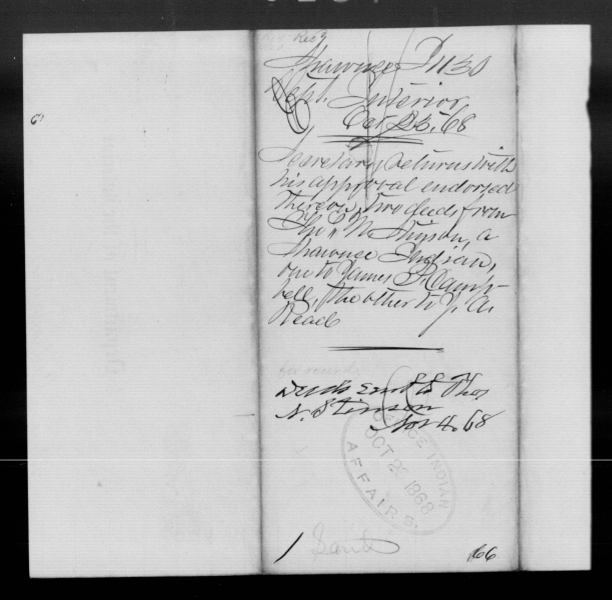 Shawnee I 1130
Dept. Interior
Oct 23. 68
Secretary, returns with
his approval endorsed
thereon, two deeds from
Tho. N. Stinson, a
Shawnee Indian,
one to James Campbell,
the other to J. A.
Read
Deeds sent to Thos
N. Stinson
Nov 4. 68
OFFICE INDIAN
OCT 1868
AFFAIRS
66